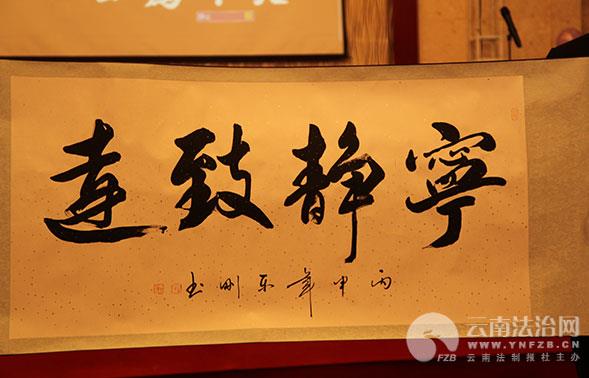 寧静致遠
丙申年东刚书
云南法治网
WWW.YNFZB.CN
FZB 云南法制报社主办